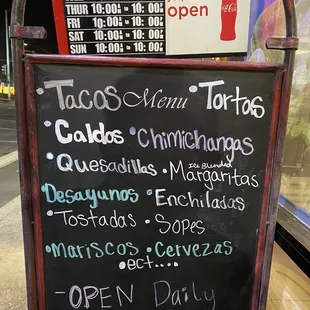 THUR 10:00AM TO 10:00
FRI 10:00AM TO 10:00
SAT 10:00AM TO 10:00
SUN 10:00AM TO 10:00
open
Coca-Cola
•Tacos Menu •Tortos
•Caldos •Chimichangas
•Quesadillas •Ice Blended
Margaritas
Desayunos •Enchiladas
•Tostadas •Sopes
•Mariscos •Cervezas
•ect....
-OPEN Daily